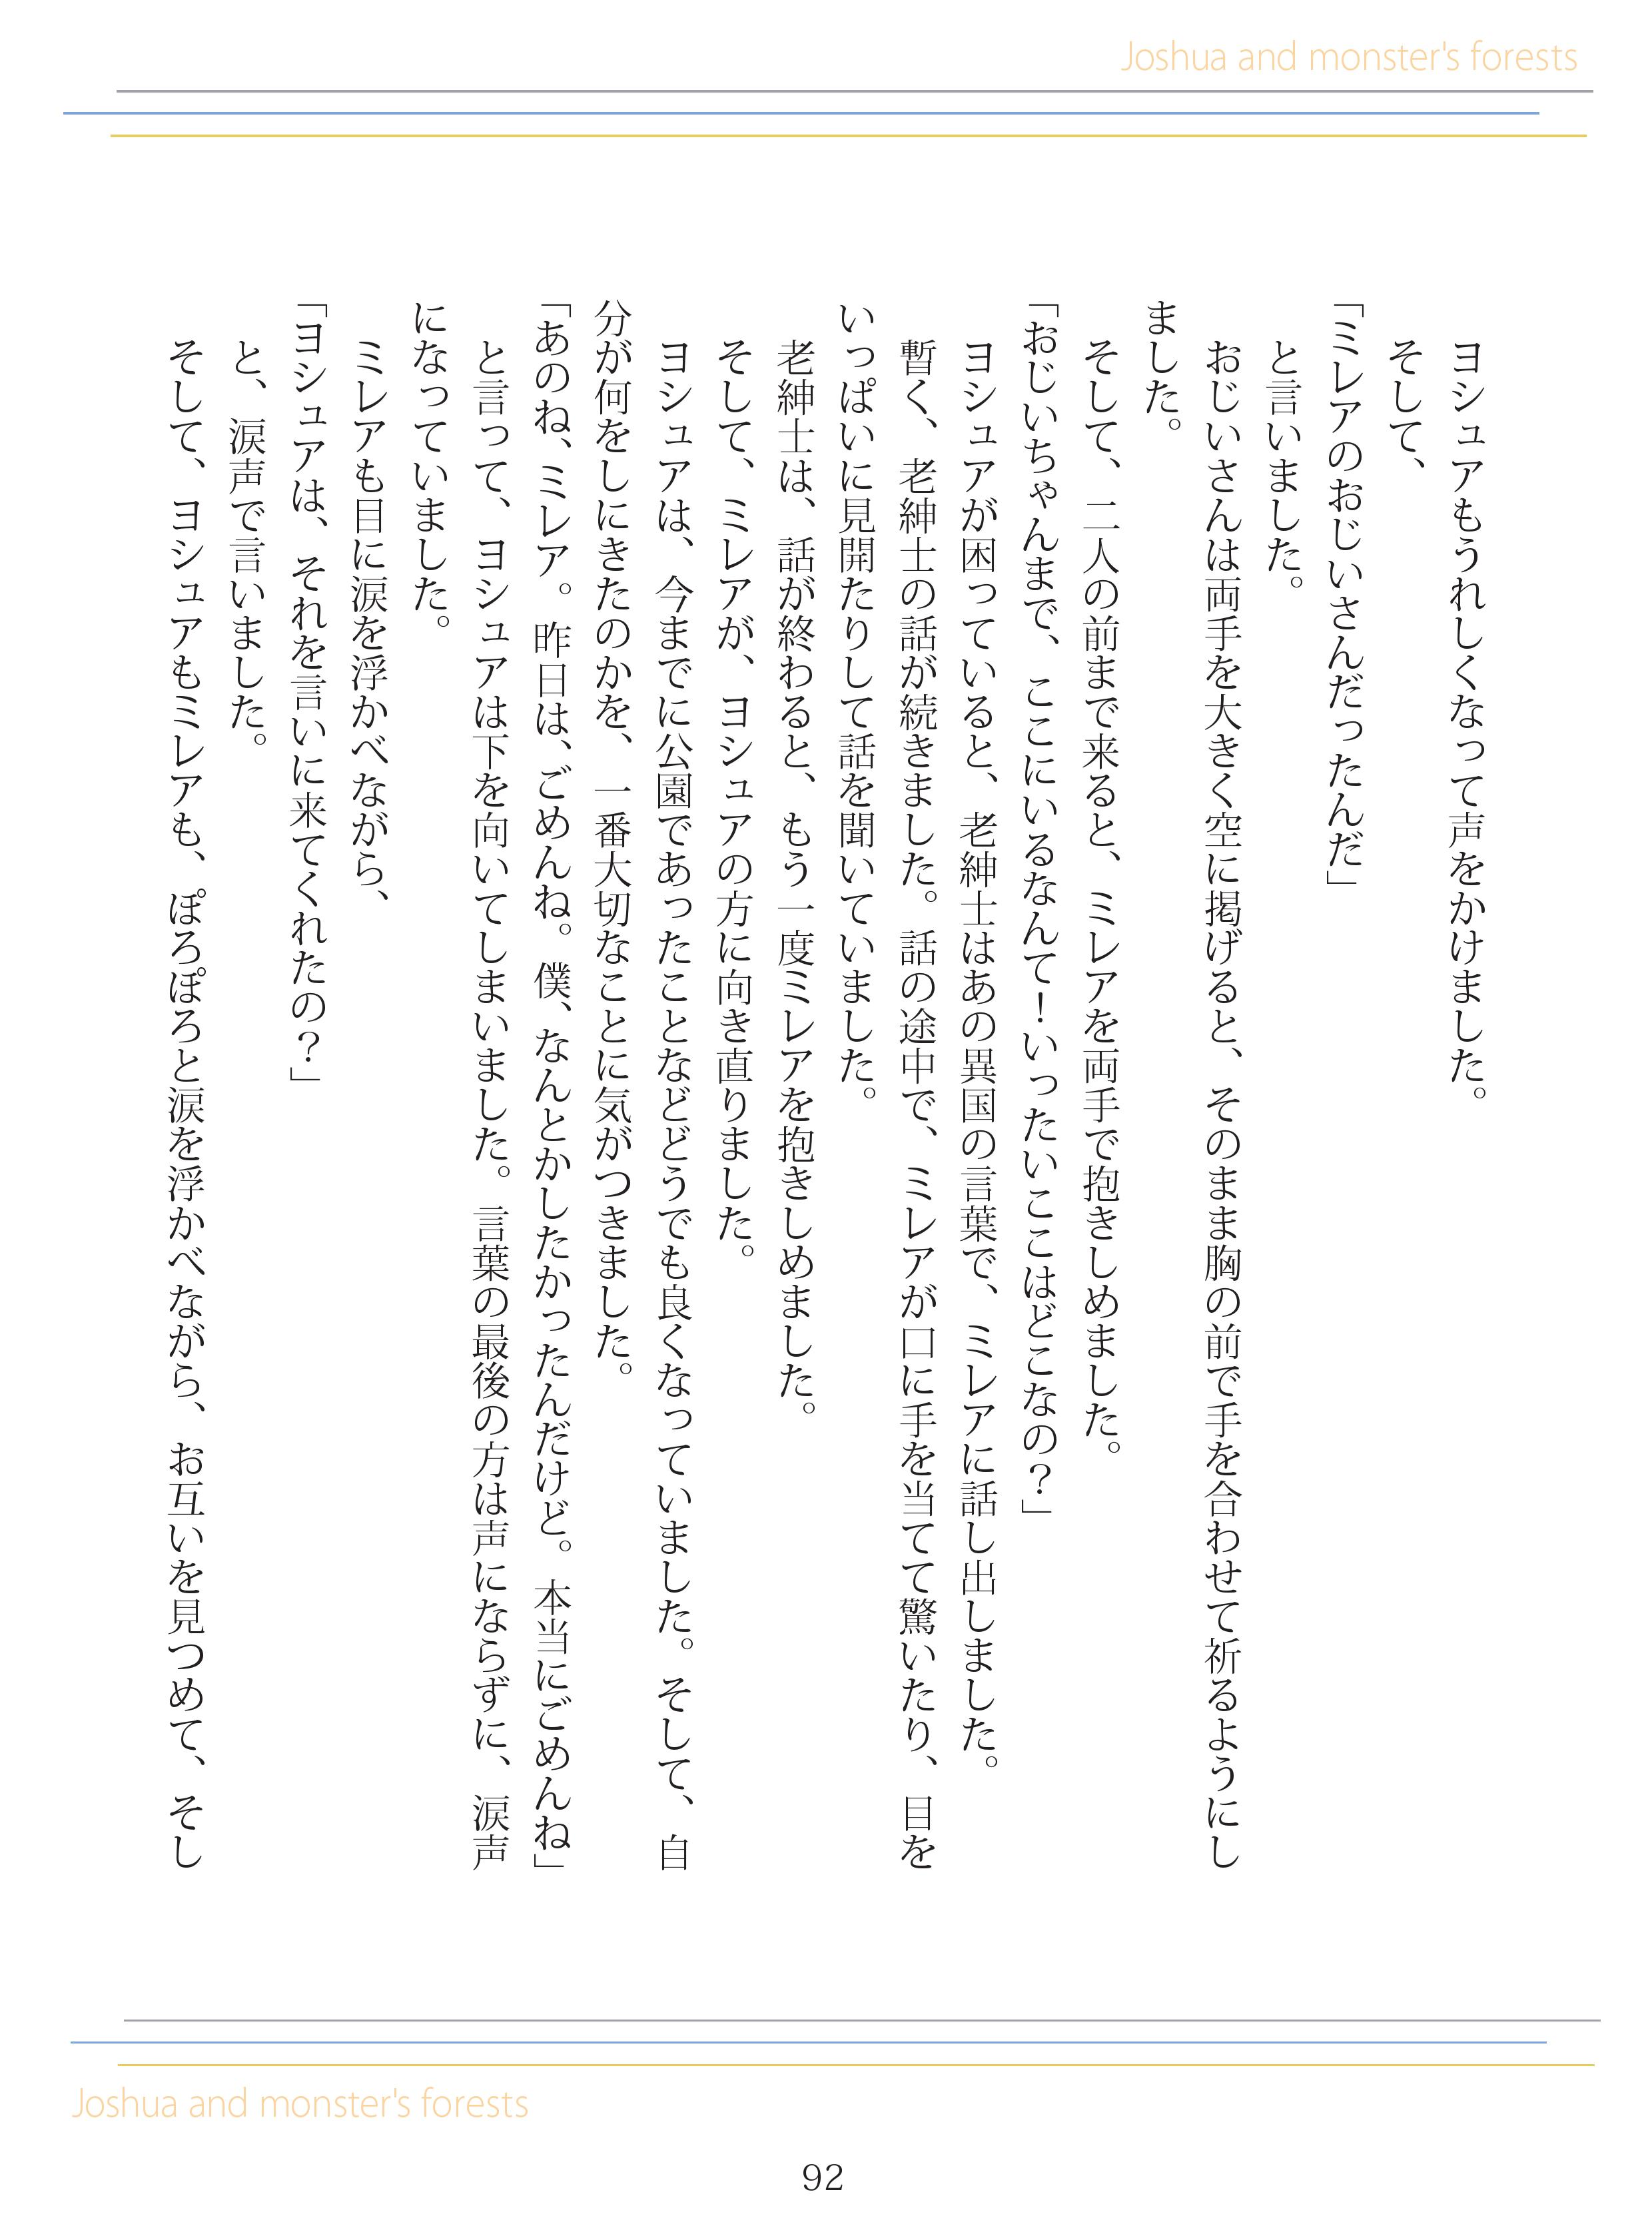 Joshua and monster's forests
ヨシュアもうれしくなって声をかけました。
そして、
「ミレアのおじいさんだったんだ」
と言いました。
おじいさんは両手を大きく空に掲げると、そのまま胸の前で手を合わせて祈るようにし
ました。
そして、二人の前まで来ると、ミレアを両手で抱きしめました。
「おじいちゃんまで、ここにいるなんて！いったいここはどこなの？」
ヨシュアが困っていると、老紳士はあの異国の言葉で、ミレアに話し出しました。
暫く、老紳士の話が続きました。話の途中で、ミレアが口に手を当てて驚いたり、目を
いっぱいに見開たりして話を聞いていました。
老紳士は、話が終わると、もう一度ミレアを抱きしめました。
そして、ミレアが、ヨシュアの方に向き直りました。
ヨシュアは、今までに公園であったことなどどうでも良くなっていました。そして、自
分が何をしにきたのかを、一番大切なことに気がつきました。
「あのね、ミレア。昨日は、ごめんね。僕、なんとかしたかったんだけど。本当にごめんね」
と言って、ヨシュアは下を向いてしまいました。言葉の最後の方は声にならずに、涙声
になっていました。
ミレアも目に涙を浮かべながら、
「ヨシュアは、それを言いに来てくれたの？」
と、涙声で言いました。
そして、ヨシュアもミレアも、ぽろぽろと涙を浮かべながら、お互いを見つめて、そし
Joshua and monster's forests
92